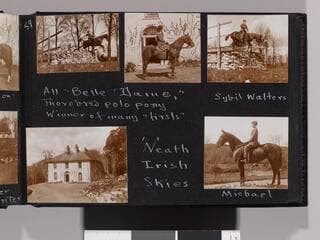 All "Belle Dame,"
Thorobred polo pony
Winner of many "firsts"
Sybil Walters
'Neath
Irish
Skies
Michael